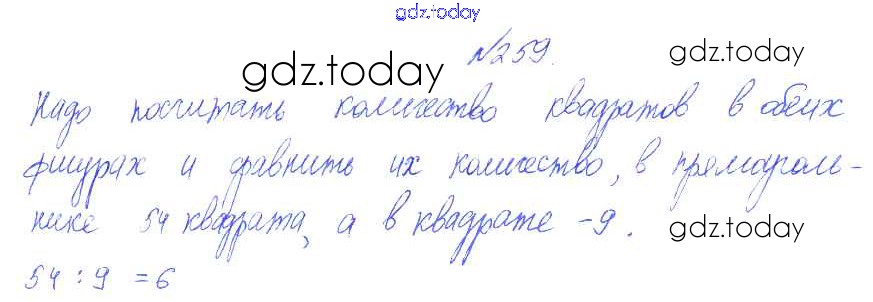 gdz.today
№259.
gdz.today
gdz.today
Надо посчитать количество квадратов в обеих
фигурах и сравнить их количество, в прямоуголь-
нике 54 квадрата, а в квадрате - 9.
gdz.today
54 : 9 = 6